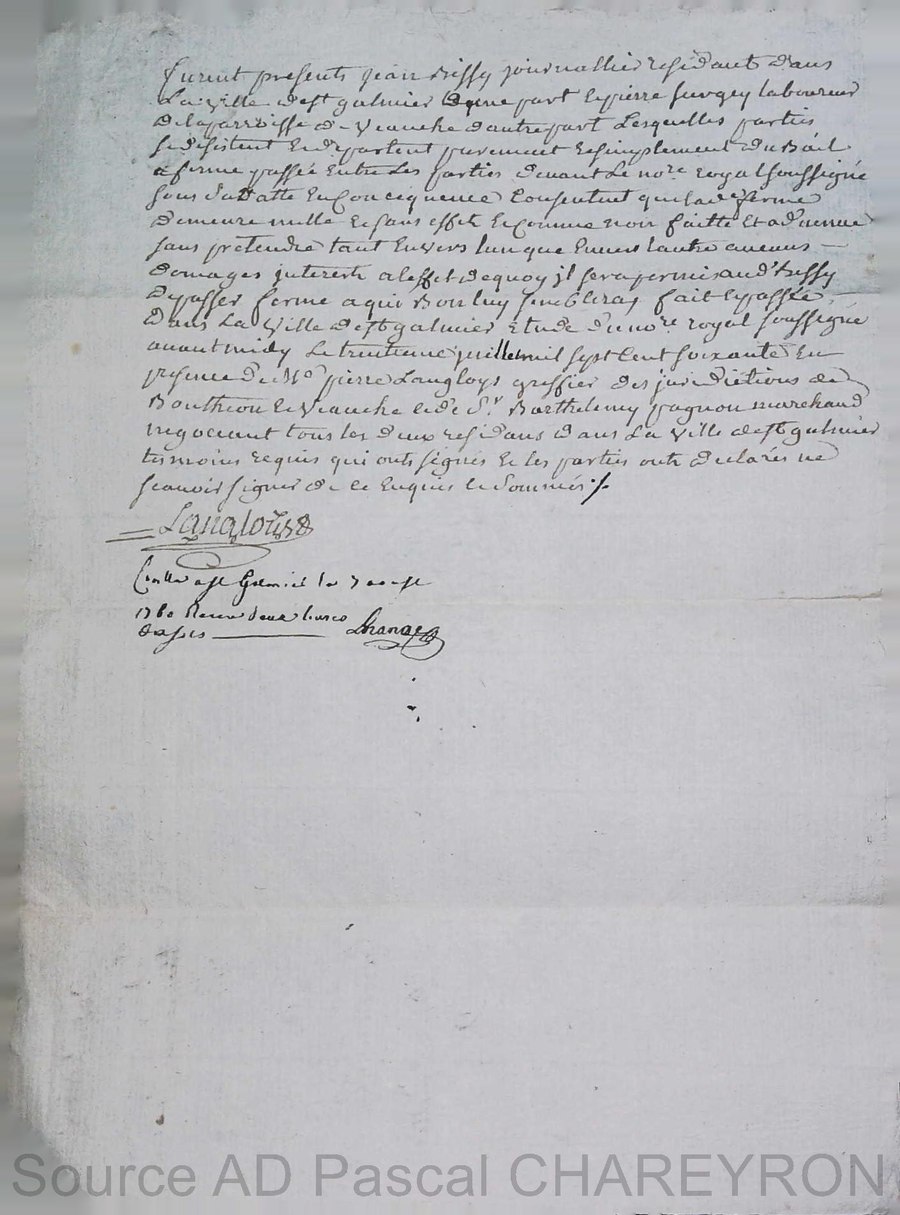 furent presents jean Bissy journallier residant dans
La ville de st galmier d'une part et pierre surgey laboureur
de la parroisse de veauche d'autre part Lesquelles parties
se desistent et departent purement et simplement du Bail
a ferme passée Entre Les parties devant Le nore royal soussigné
sous sa datte En Conciquence Consentent que lade ferme
demeure nulle et sans effet et comme non faitte et advenue
sans pretendre tant Envers lun que Envers lautre aucuns
domages interets a leffet de quoy il sera permis aud Bissy
de passer ferme a qui Bon luy semblera fait et passée
dans La ville de st galmier Etude du nore royal soussigné
avant midy Le trentieme juillet mil sept cent soixante En
presence de Me pierre Langloys greffier des juridictions de
Boutheon et veauche et de Sr Barthelemy pagnon marchand
negociant tous les deux residans dans La ville de st galmier
temoins requis qui onts signés et les parties onts declarés ne
scavoir signer de ce Enquis et sommés ./.
Langloys
Conllé a st Galmier le 7 aoust
1760 Receu douze sols